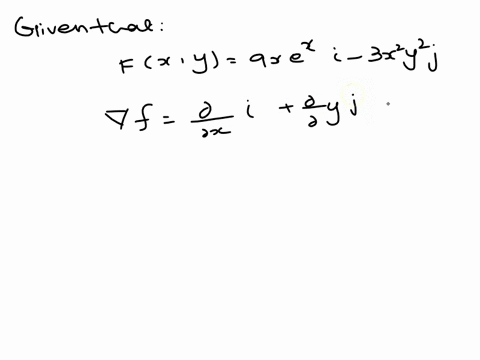 Given that:
F(x, y) = 9xe^x i - 3x²y² j
∇f = ∂/∂x i + ∂/∂ y j